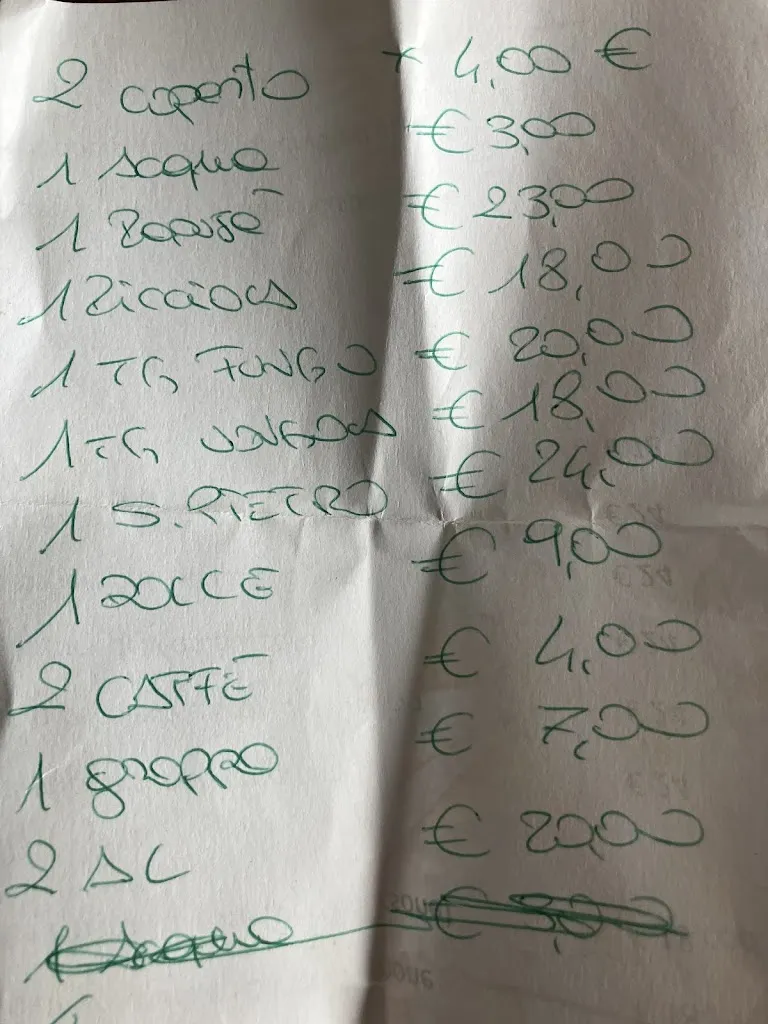 2 coperto + 4,00 €
1 Acqua € 3,00
1 € 23,00
1 Ricciola € 18,00
1 TG FUNGO € 20,00
1 TG VONGOLA € 18,00
1 S. PIETRO € 24,00
1 DOLCE € 9,00
2 CAFFÈ € 4,00
1 grappa € 7,00
2 AC € 20,00
1 Acqua € 3,00